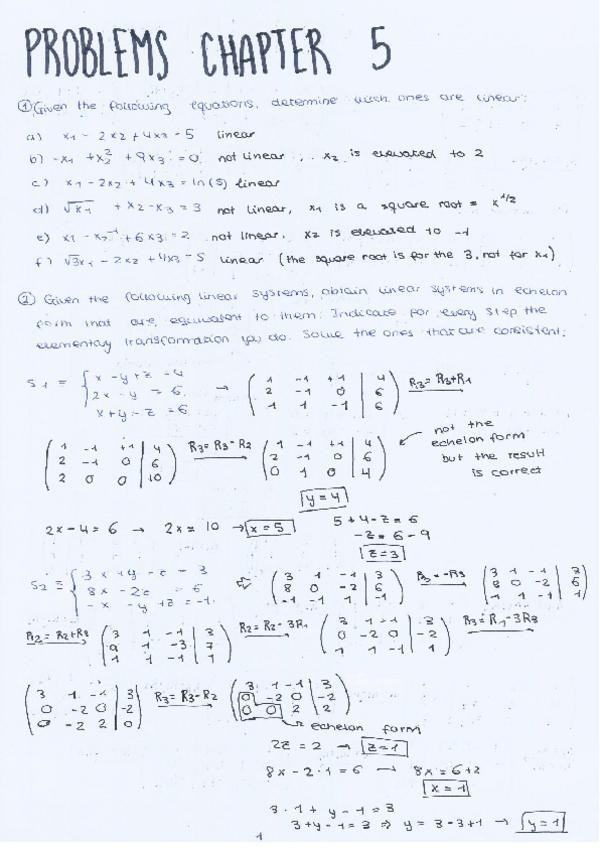 PROBLEMS CHAPTER 5
① Given the following equations, determine which ones are linear:
a) x₁ - 2x₂ + 4x₃ = 5 linear
b) -x₁ + x₂² + 9x₃ = 0 not linear ... x₂ is elevated to 2
c) x₁ - 2x₂ + 4x₃ = ln(5) linear
d) √x₁ + x₂ - x₃ = 3 not linear, x₁ is a square root = x^1/2
e) x₁ - x₂⁻¹ + 6x₃ = 2 not linear, x₂ is elevated to -1
f) √3x₁ - 2x₂ + 4x₃ = 5 linear (the square root is for the 3, not for x₁)
② Given the following linear systems, obtain linear systems in echelon
form that are equivalent to them. Indicate for every step the
elementary transformation you do. Solve the ones that are consistent:
S₁ ≡ { x - y + z = 4 → ( 1 -1 +1 | 4 ) R₃ = R₃+R₁
2x - y = 6 ( 2 -1 0 | 6 )
x + y - z = 6 ( 1 1 -1 | 6 )
not the
echelon form
but the result
is correct
( 1 -1 +1 | 4 ) R₃ = R₃-R₂ ( 1 -1 +1 | 4 )
( 2 -1 0 | 6 ) ( 2 -1 0 | 6 )
( 2 0 0 | 10 ) ( 0 1 0 | 4 )
y = 4
2x - 4 = 6 → 2x = 10 → x = 5 5 + 4 - z = 6
-z = 6 - 9
z = 3
S₂ ≡ { 3x + y - z = 3 ( 3 1 -1 | 3 ) R₃ = -R₃ ( 3 1 -1 | 3 )
8x - 2z = 6 ( 8 0 -2 | 6 ) ( 8 0 -2 | 6 )
-x - y + z = -1 ( -1 -1 1 | -1 ) ( 1 1 -1 | 1 )
R₂ = R₂+R₃ ( 3 1 -1 | 3 ) R₂ = R₂-3R₁ ( 3 1 -1 | 3 ) R₃ = R₁-3R₃
( 9 1 -3 | 7 ) ( 0 -2 0 | -2 )
( 1 1 -1 | 1 ) ( 1 1 -1 | 1 )
( 3 1 -1 | 3 ) R₃ = R₃-R₂ ( 3 1 -1 | 3 )
( 0 -2 0 | -2 ) ( 0 -2 0 | -2 )
( 0 -2 2 | 0 ) ( 0 0 2 | 2 )
echelon form
2z = 2 → z = 1
8x - 2·1 = 6 → 8x = 6+2
x = 1
3·1 + y - 1 = 3
3 + y - 1 = 3 ⇒ y = 3-3+1 → y = 1
1